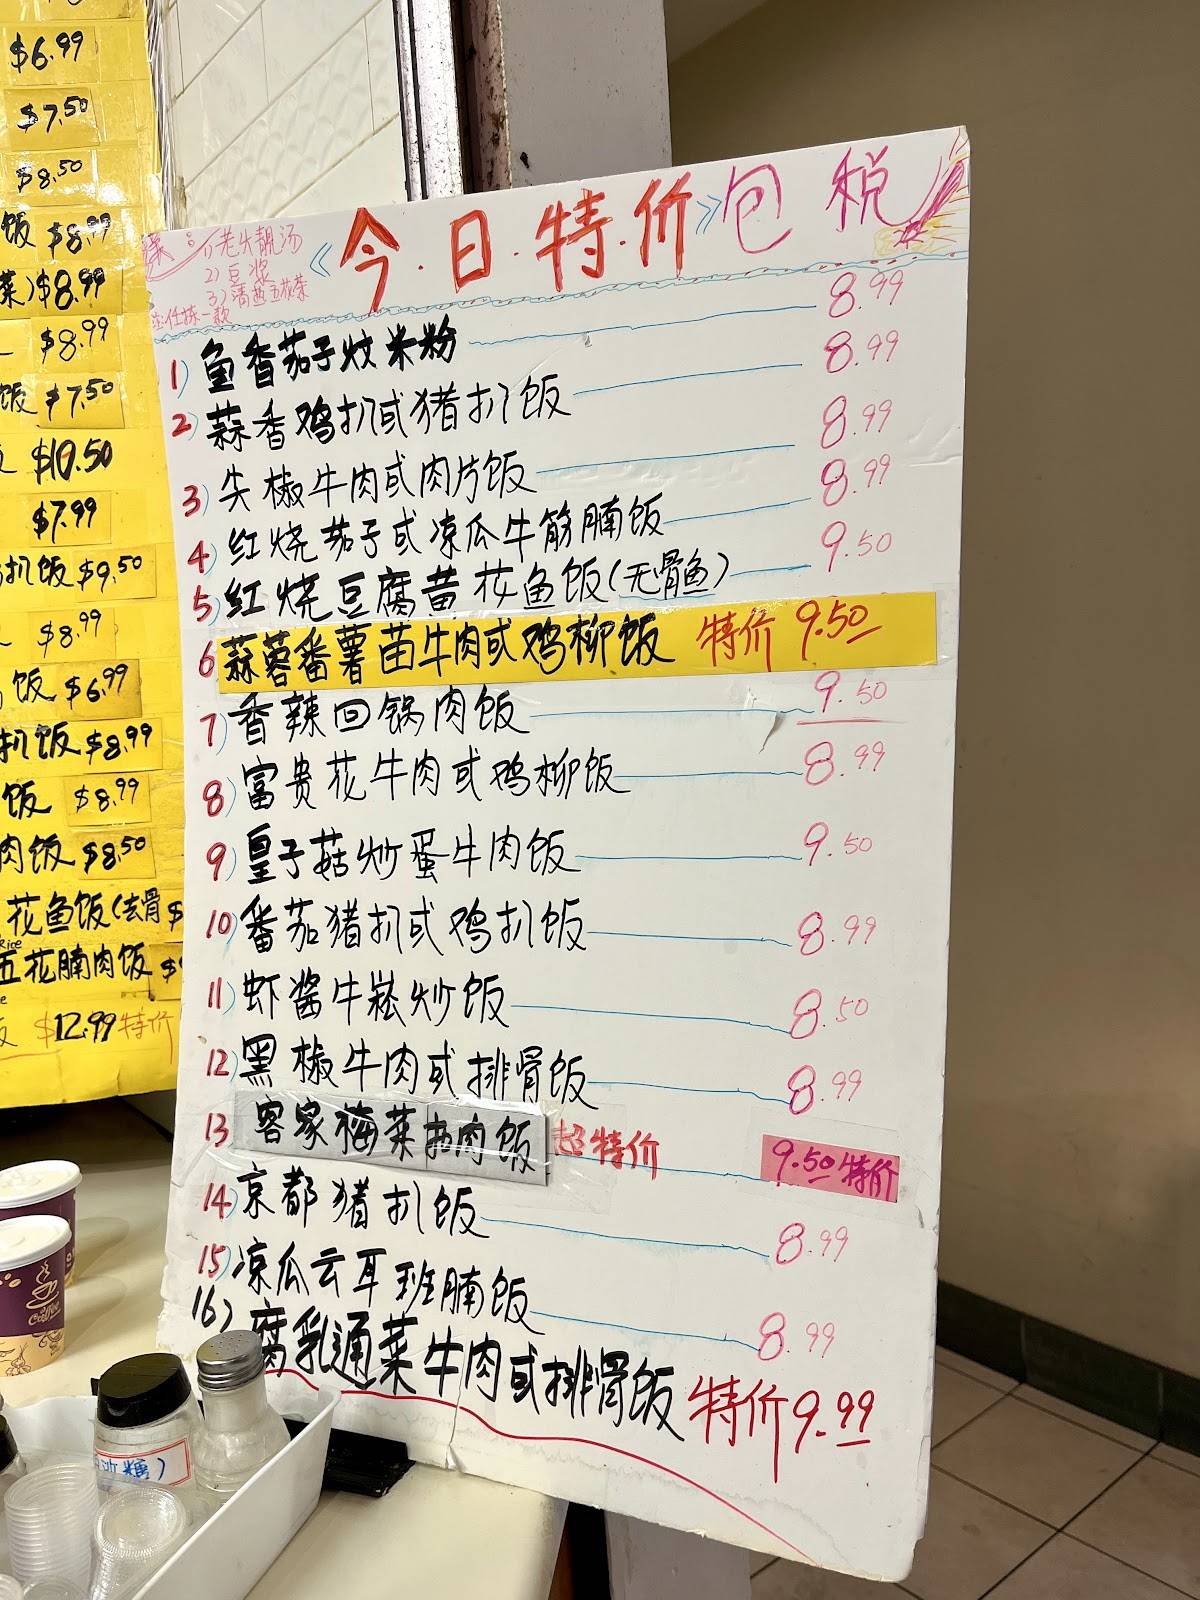 $6.99
$7.50
$8.50
饭 $8.99
菜) $8.99
$8.99
饭 $7.50
$10.50
$7.99
扒饭 $9.50
$8.99
饭 $6.99
扒饭 $8.99
饭 $8.99
肉饭 $8.50
花鱼饭(去骨 $
Rice
五花腩肉饭 $
饭 $12.99 特价
1) 老火靓汤
2) 豆浆
3) 清
任拣一款
《今.日.特.价》包税
1) 鱼香茄子炆米粉 8.99
2) 蒜香鸡扒或猪扒饭 8.99
3) 尖椒牛肉或肉片饭 8.99
4) 红烧茄子或凉瓜牛筋腩饭 8.99
5) 红烧豆腐黄花鱼饭(无骨鱼) 9.50
6) 蒜蓉番薯苗牛肉或鸡柳饭 特价 9.50
7) 香辣回锅肉饭 9.50
8) 富贵花牛肉或鸡柳饭 8.99
9) 皇子菇炒蛋牛肉饭 9.50
10) 番茄猪扒或鸡扒饭 8.99
11) 虾酱牛崧炒饭 8.50
12) 黑椒牛肉或排骨饭 8.99
13) 客家梅菜扣肉饭 超特价 9.50 特价
14) 京都猪扒饭 8.99
15) 凉瓜云耳班腩饭 8.99
16) 腐乳通菜牛肉或排骨饭 特价 9.99
coffee
糖)